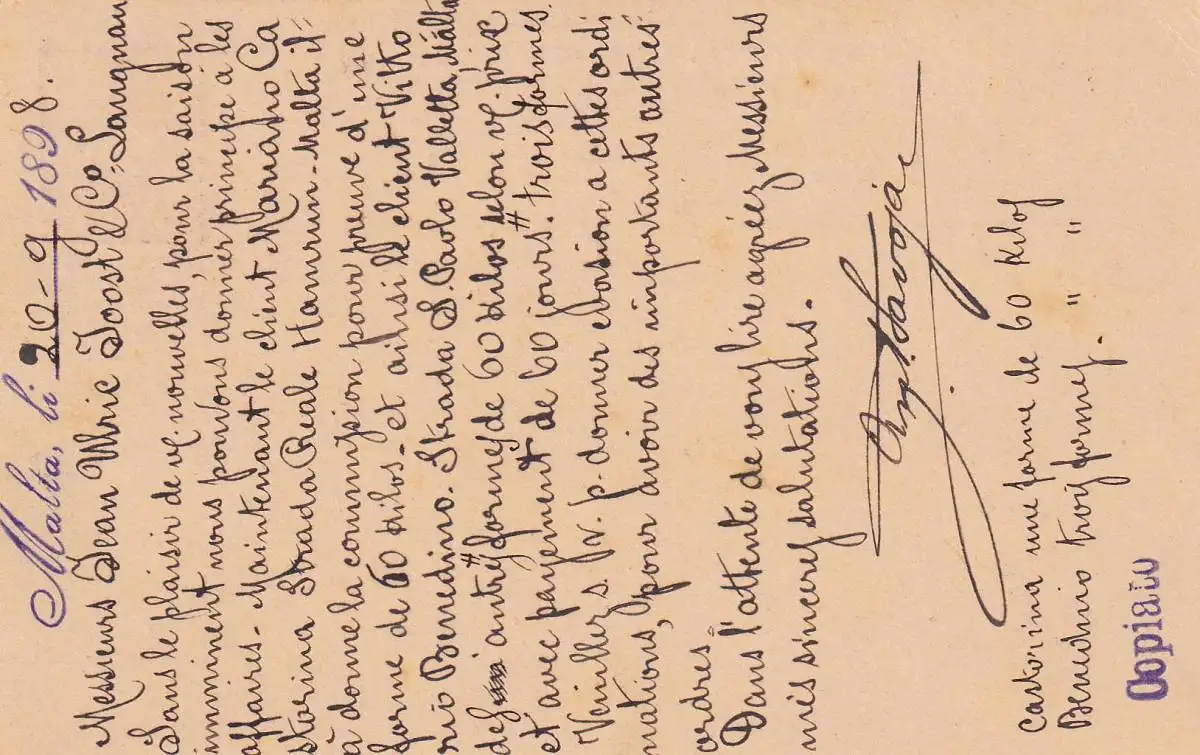 Malta, li 20-9-1898.
Messieurs Jean Ulric Joost & Co. Langnau
Sans le plaisir de vs nouvelles, pour la saison
imminent nous pouvons donner principe à les
affaires - Maintenant le client Mariano Ca
storina Strada Reale Hamrun - Malta il
à donne la commission pour preuve d'une
forme de 60 kilos - et ainsi le client Vitto
rio Benedino. Strada S. Paolo Valletta Malta
des autres formes de 60 kilos selon vs. prix
et avec payement de 60 jours. trois formes.
Veuillez s. v. p. donner evasion a cettes ordi
nations, pour avoir des importants autres
ordres
Dans l'attente de vous lire agréez Messieurs
mes sinceres salutations.
Castorina une forme de 60 kilos
Benedino trois formes. " "
Copiato